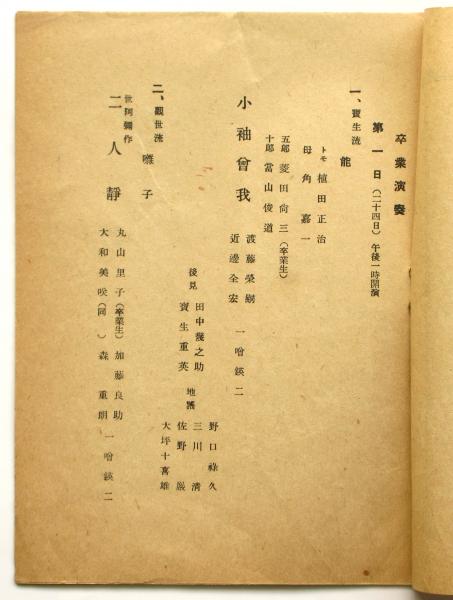 卒業演奏
第一日（二十四日）午後一時開演
一、寶生流 能
トモ 植田正治
母 角嘉一
五郎 菱田尙三（卒業生）
十郎 當山俊道
小袖曾我
渡藤榮嗣
近邊全宏
一噌鍈二
後見 田中幾之助
寶生重英
地謠
野口祿久
三川淸
佐野巖
大坪十喜雄
二、觀世流 囃子
世阿彌作
二人靜
丸山里子（卒業生）加藤良助
大和美咲（同）森重朗
一噌鍈二